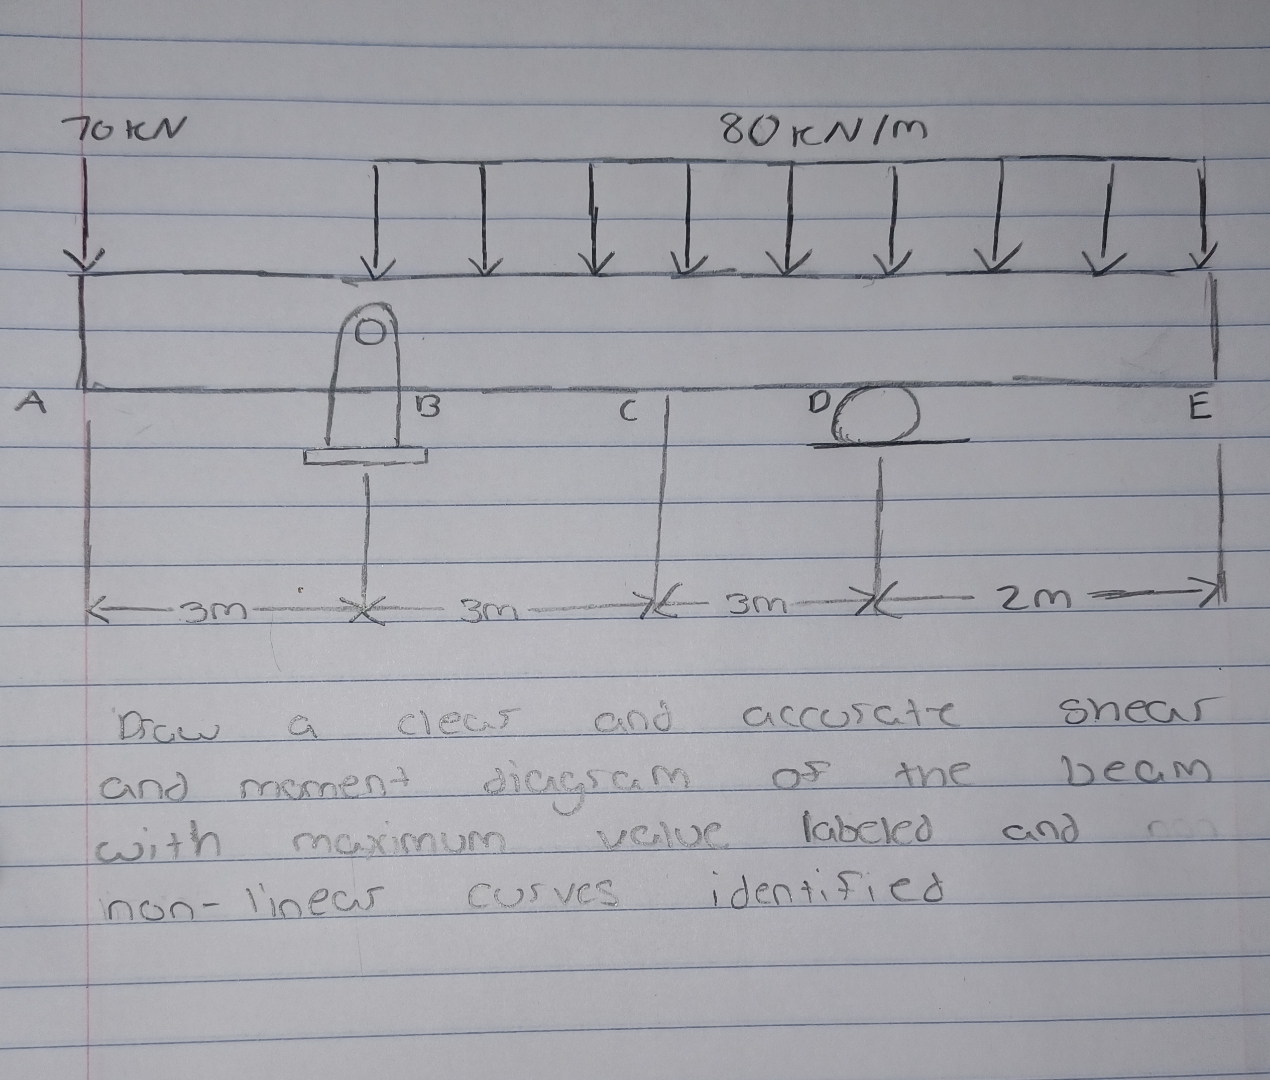 70 KN 80 KN/m
A B C D E
3m 3m 3m 2m
Draw a clear and accurate shear
and moment diagram of the beam
with maximum value labeled and
non-linear curves identified